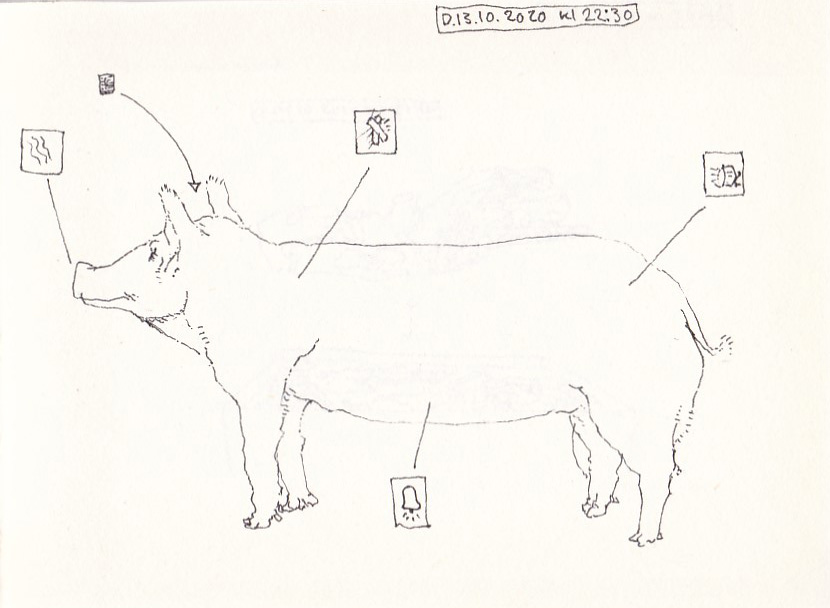 D.13.10.2020 kl 22:30